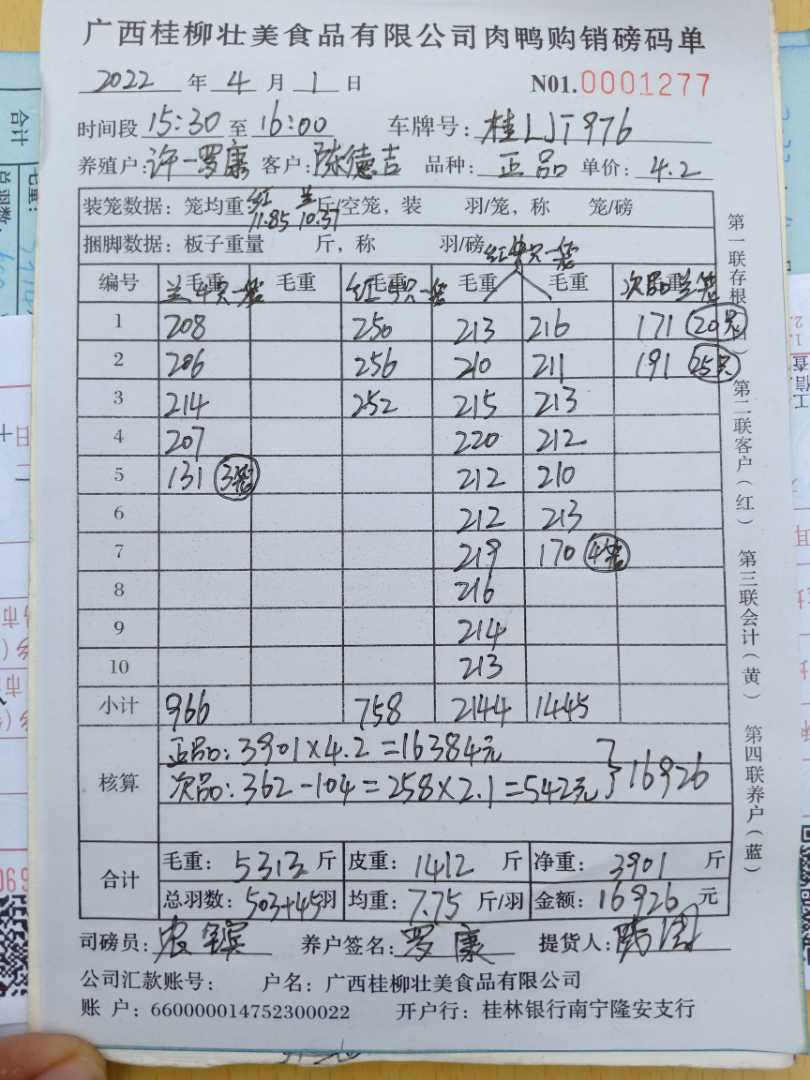 广西桂柳壮美食品有限公司肉鸭购销磅码单
2022 年 4 月 1 日 N01.0001277
时间段 15:30 至 16:00 车牌号: 桂LJT976
养殖户: 许一罗康 客户: 陈德吉 品种: 正品 单价: 4.2
装笼数据: 笼均重 红 11.85 兰 10.37 斤/空笼, 装 羽/笼, 称 笼/磅
捆脚数据: 板子重量 斤, 称 羽/磅
编号 毛重 毛重 毛重 毛重 毛重 毛重
1 208 250 213 216 171 20只
2 206 256 210 211 191 25只
3 214 252 215 213
4 207 220 212
5 131 3笼 212 210
6 212 213
7 219 170 4笼
8 216
9 214
10 213
小计 966 758 2144 1445
核算
正品: 3901×4.2=16384元
次品: 362-104=258×2.1=542元
}16926
合计
毛重: 5313 斤 皮重: 1412 斤 净重: 3901 斤
总羽数: 503+45羽 均重: 7.75 斤/羽 金额: 16926 元
司磅员: 养户签名: 罗康 提货人:
公司汇款账号: 户名: 广西桂柳壮美食品有限公司
账 户: 660000014752300022 开户行: 桂林银行南宁隆安支行
第一联存根
第二联客户(红)
第三联会计(黄)
第四联养户(蓝)
合计